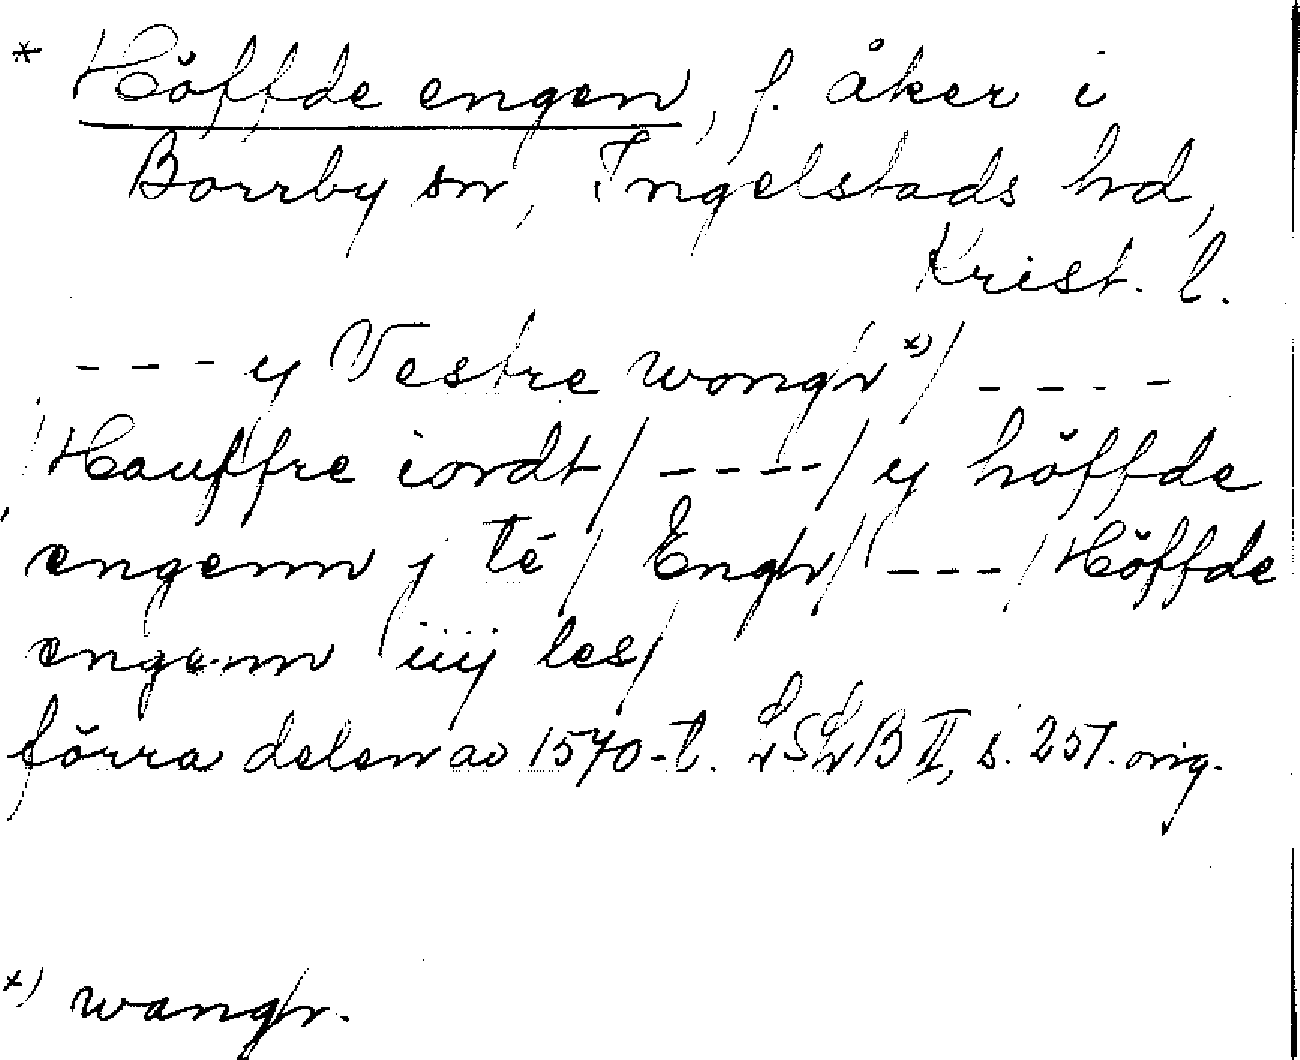 * Höffde engen, f. åker i
Borrby sn, Ingelstads hd,
Krist. l.
- - - y Vestre wongr x) / - - - -
Hauffre iordt / - - - - / y höffde
engenn j té / Engr / - - - / Höffde
engenn iiij les /
förra delen av 1570-t. B II, s. 257. orig.
x) wangr.